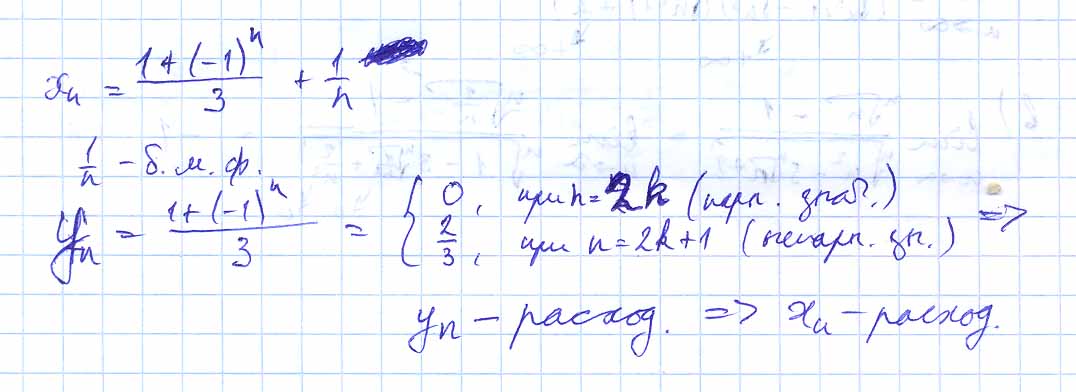 xₙ = (1 + (-1)ⁿ)/3 + 1/n
1/n - б.м.ф.
yₙ = (1 + (-1)ⁿ)/3 = { 0, при n = 2k (парн. знач.) =>
2/3, при n = 2k+1 (непарн. зн.)
yₙ - расход. => xₙ - расход.